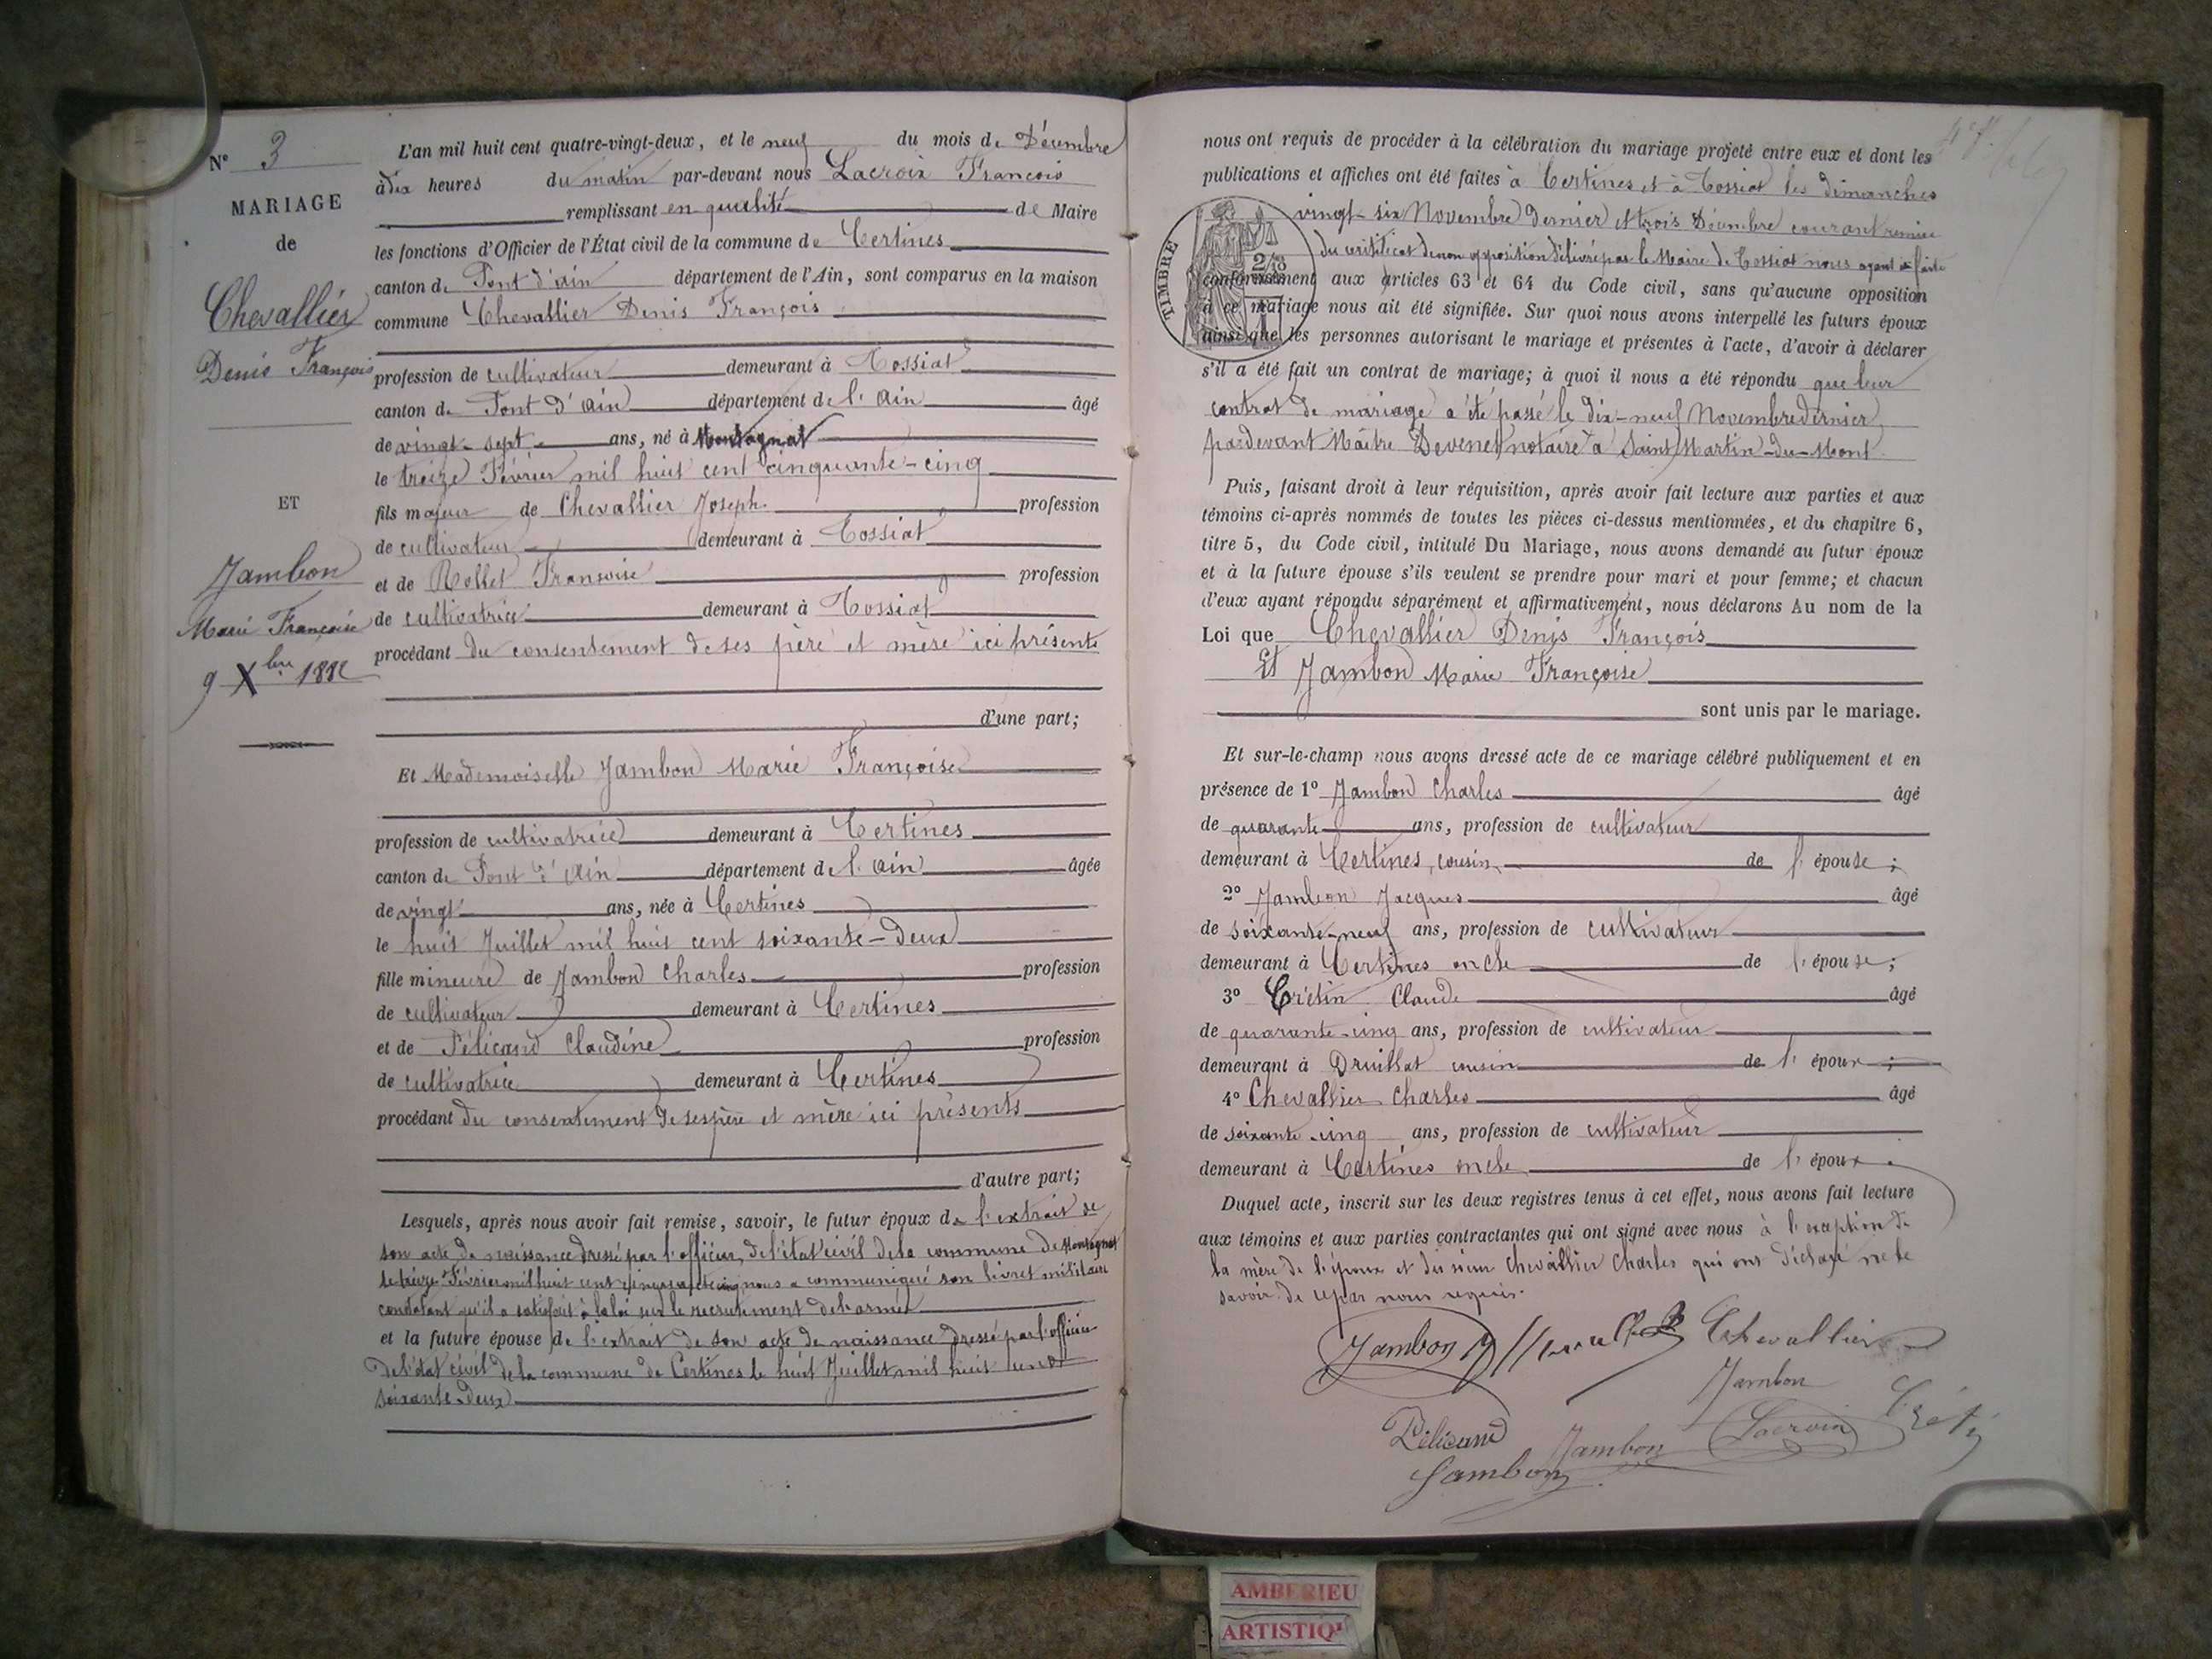 N° 3
MARIAGE
de
Chevallier
Denis François
ET
Jambon
Marie Françoise
9 Xbre 1882
L'an mil huit cent quatre-vingt-deux, et le neuf du mois de Décembre
à dix heures du matin par-devant nous Lacroix François
remplissant en qualité de Maire
les fonctions d'Officier de l'État civil de la commune de Certines
canton de Pont d'ain département de l'Ain, sont comparus en la maison
commune Chevallier Denis François
profession de cultivateur demeurant à Tossiat
canton de Pont d'Ain département de l'Ain âgé
de vingt-sept ans, né à Montagnat
le treize Février mil huit cent cinquante-cinq
fils majeur de Chevallier Joseph profession
de cultivateur demeurant à Tossiat
et de Rollet Fransoise profession
de cultivatrice demeurant à Tossiat
procédant du consentement de ses père et mère ici présents
d'une part;
Et Mademoiselle Jambon Marie Françoise
profession de cultivatrice demeurant à Certines
canton de Pont d'Ain département de l'Ain âgée
de vingt ans, née à Certines
le huit Juillet mil huit cent soixante-deux
fille mineure de Jambon Charles profession
de cultivateur demeurant à Certines
et de Pélicand Claudine profession
de cultivatrice demeurant à Certines
procédant du consentement de ses père et mère ici présents
d'autre part;
Lesquels, après nous avoir fait remise, savoir, le futur époux de l'extrait de
son acte de naissance dressé par l'officier de l'état civil de la commune de Montagnat
le treize Février mil huit cent cinquante cinq nous a communiqué son livret militaire
constatant qu'il a satisfait à la loi sur le recrutement de l'armée
et la future épouse de l'extrait de son acte de naissance dressé par l'officier
de l'état civil de la commune de Certines le huit Juillet mil huit cent
soixante-deux
nous ont requis de procéder à la célébration du mariage projeté entre eux et dont les
publications et affiches ont été faites à Certines et à Tossiat les dimanches
vingt-six Novembre dernier et trois Décembre courant remise
du certificat de non opposition délivré par le Maire de Tossiat nous ayant été faite
conformément aux articles 63 et 64 du Code civil, sans qu'aucune opposition
à ce mariage nous ait été signifiée. Sur quoi nous avons interpellé les futurs époux
ainsi que les personnes autorisant le mariage et présentes à l'acte, d'avoir à déclarer
s'il a été fait un contrat de mariage; à quoi il nous a été répondu que leur
contrat de mariage a été passé le dix-neuf Novembre dernier
pardevant Maître Devenet notaire à Saint Martin-du-Mont
TIMBRE
Puis, faisant droit à leur réquisition, après avoir fait lecture aux parties et aux
témoins ci-après nommés de toutes les pièces ci-dessus mentionnées, et du chapitre 6,
titre 5, du Code civil, intitulé Du Mariage, nous avons demandé au futur époux
et à la future épouse s'ils veulent se prendre pour mari et pour femme; et chacun
d'eux ayant répondu séparément et affirmativement, nous déclarons Au nom de la
Loi que Chevallier Denis François
Et Jambon Marie Françoise
sont unis par le mariage.
Et sur-le-champ nous avons dressé acte de ce mariage célébré publiquement et en
présence de 1° Jambon Charles âgé
de quarante ans, profession de cultivateur
demeurant à Certines, cousin de l'épouse;
2° Jambon Jacques âgé
de soixante-neuf ans, profession de cultivateur
demeurant à Certines oncle de l'épouse;
3° Crétin Claude âgé
de quarante-cinq ans, profession de cultivateur
demeurant à Druillat cousin de l'époux;
4° Chevallier Charles âgé
de soixante-cinq ans, profession de cultivateur
demeurant à Certines oncle de l'époux.
Duquel acte, inscrit sur les deux registres tenus à cet effet, nous avons fait lecture
aux témoins et aux parties contractantes qui ont signé avec nous à l'exception de
la mère de l'époux et du sieur Chevallier Charles qui ont déclaré ne le
savoir de ce par nous requis.
Jambon Chevallier
Jambon
Pélicand Jambon Lacroix Crétin
Jambon
AMBERIEU
ARTISTIQ